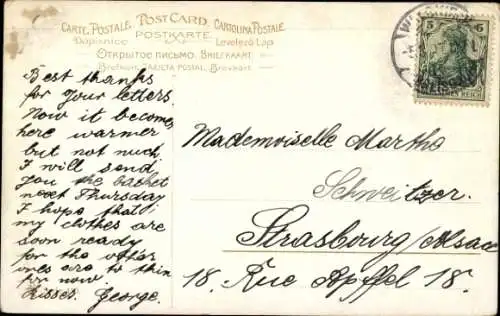 CARTE POSTALE. POST CARD. CARTOLINA POSTALE.
Dopisnice POSTKARTE Levelező-Lap
ОТКРЫТОЕ ПИСЬМО. BRIEFKAART.
Brefkort. TARJETA POSTAL. Brevkort.
5 5
REICH
Best thanks
for your letters.
Now it becomes
here warmer
but not much.
I will send
you the basket
next Thursday
I hope that
my clothes are
soon ready
for the other
ones are to thin
for now.
Kisses. George.
Mademoiselle Martha
Schweitzer.
Strasbourg/Alsace
18. Rue Apffel 18.